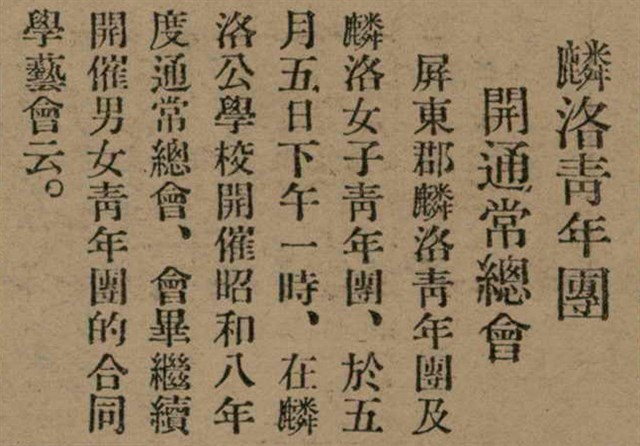 麟洛靑年團
開通常總會
屏東郡麟洛靑年團及
麟洛女子靑年團、於五
月五日下午一時、在麟
洛公學校開催昭和八年
度通常總會、會畢繼續
開催男女靑年團的合同
學藝會云。